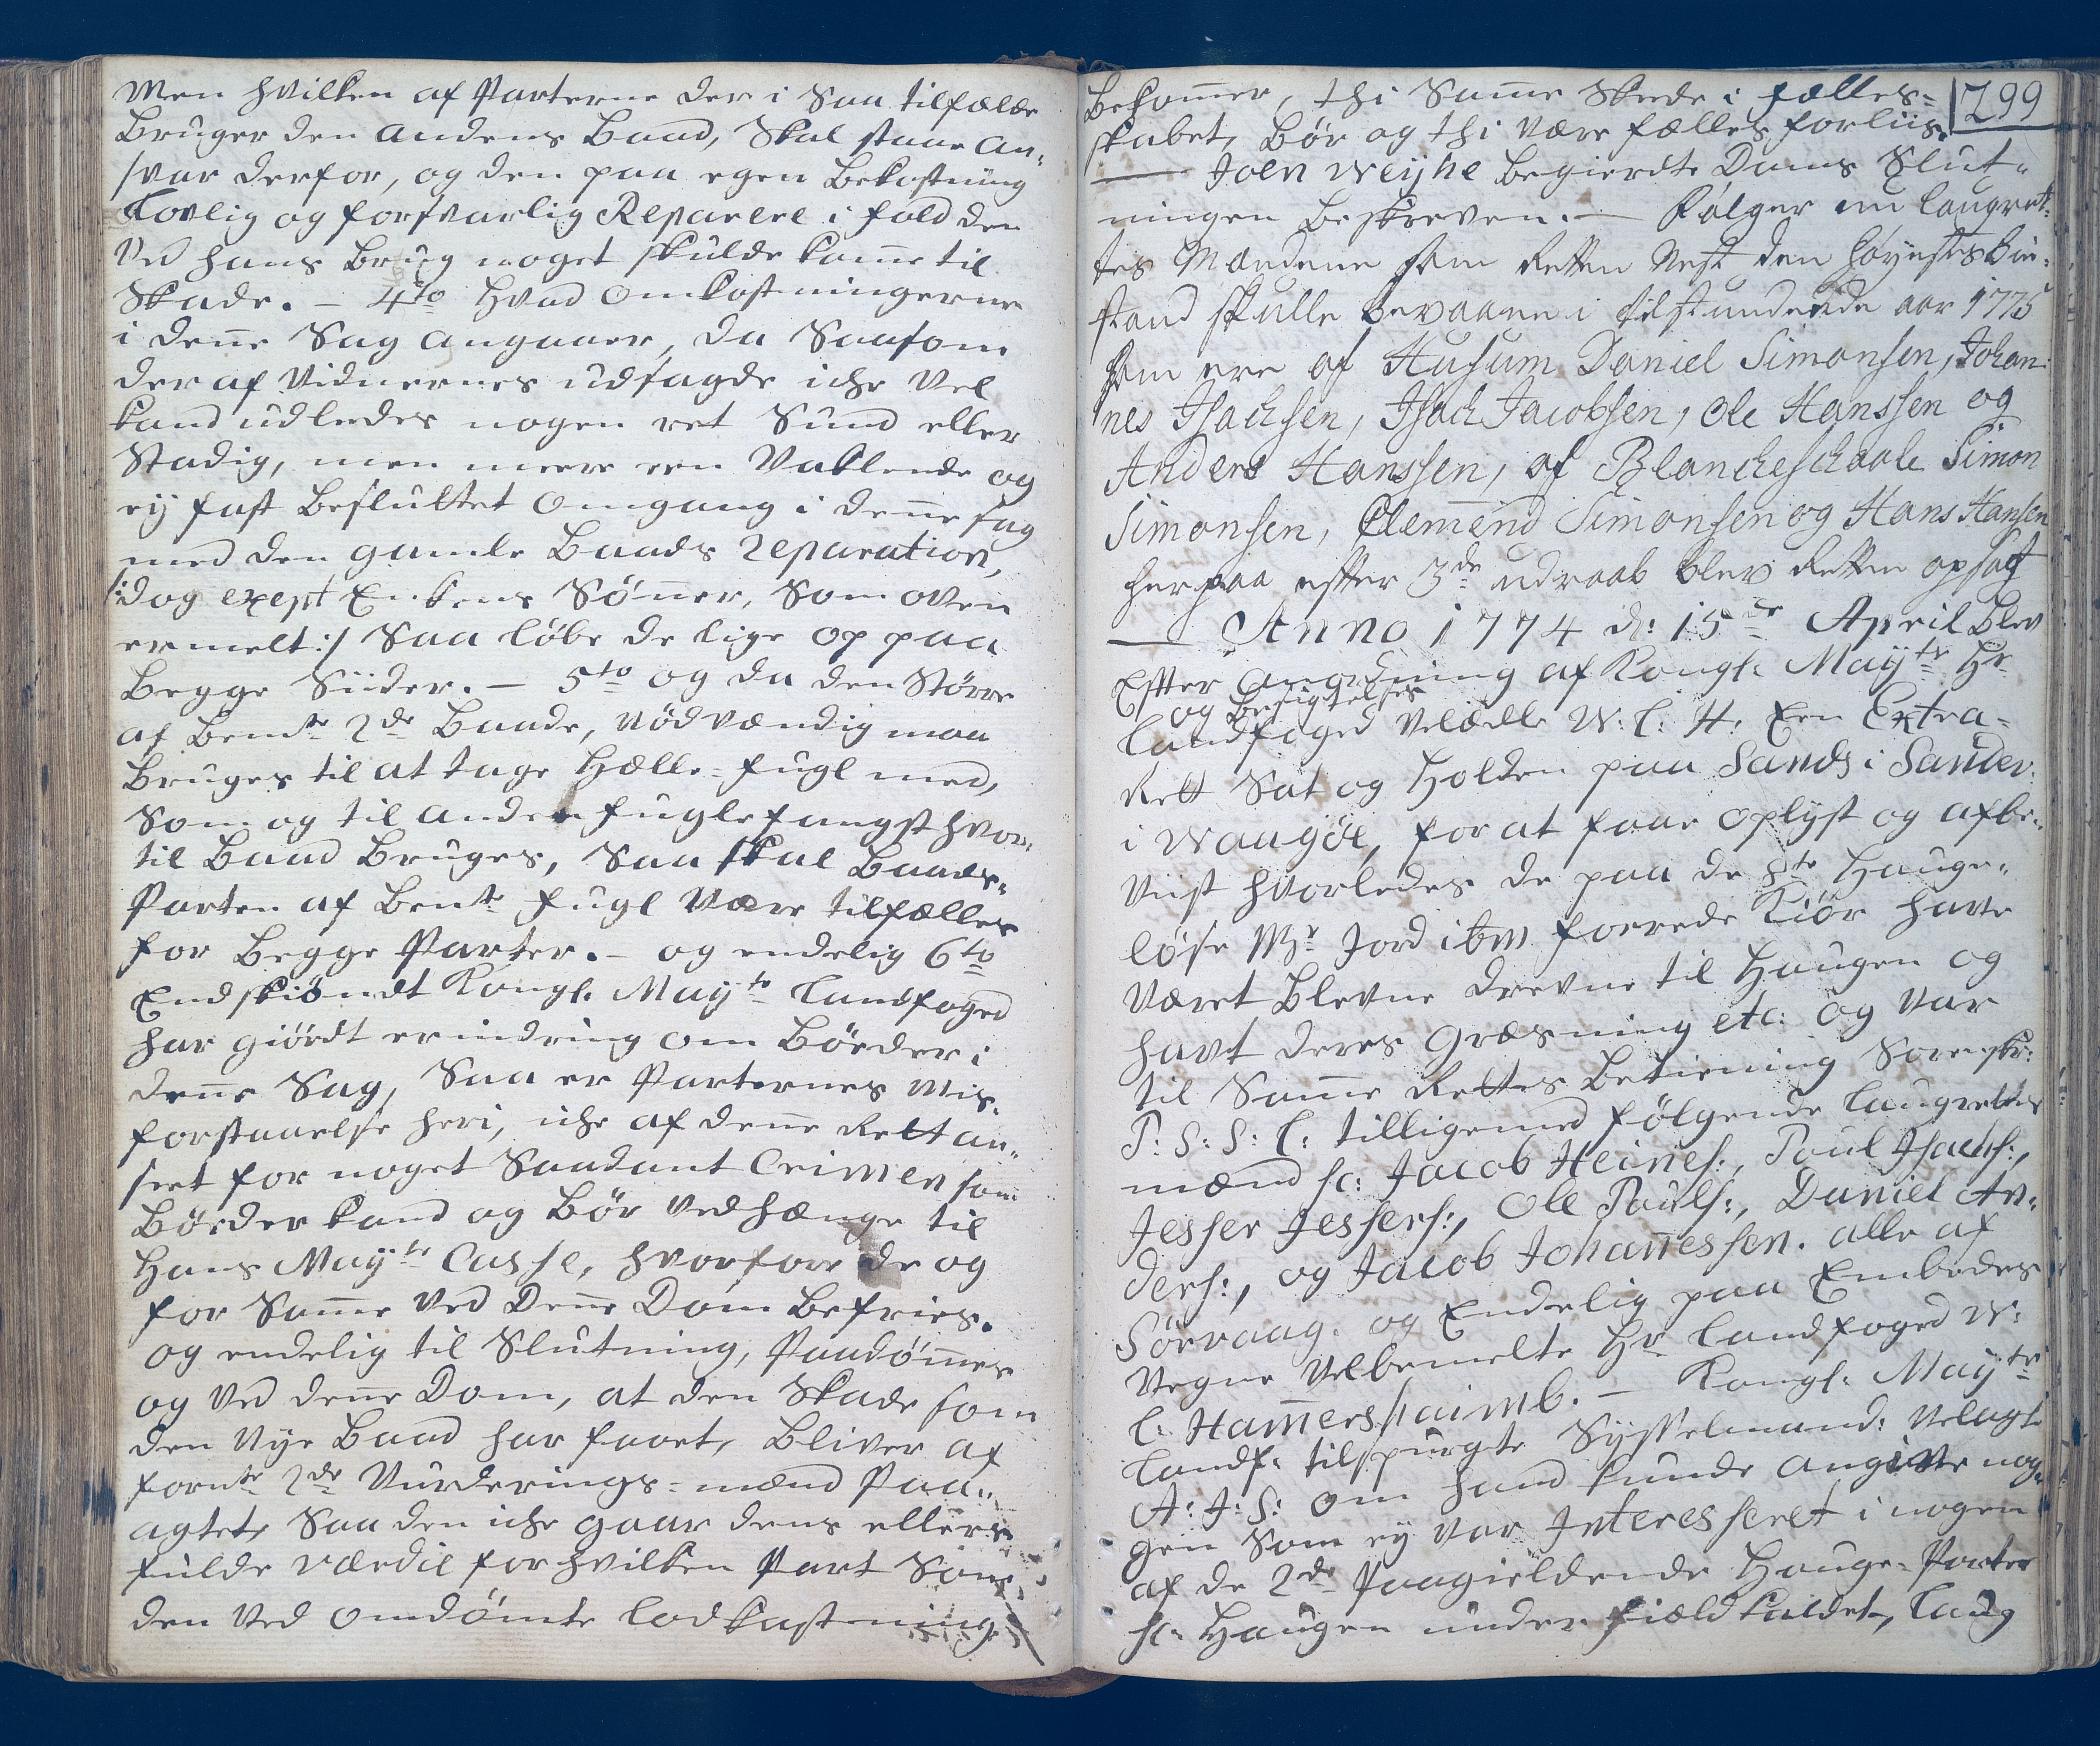 Men hvilken af Parterne der i Saa tilfælde
Bruger den andens Baad, Skal staae an-
svar derfor, og den paa egen Bekostning
Lovlig og forsvarlig Reparere i fald den
Ved hans Brug noget skulde komme til
Skade. – 4to Hvad omkostningerne
i denne Sag angaaer, da Saasom
der af Vidnernes udsagde iche Vel
kand udledes nogen ret Sund eller
Stadig, men meere een Vaklende og
ey fast Besluttet omgang i denne sag
med den gamle Baads reparation,
/:dog exept Enkens Sønner, Som oven
ermelt:/ Saa løbe de lige op paa
Begge Siider. – 5to og da den Större
af Bemte 2de Baade, nödvændig maa
Bruges til at tage Hælle-fugl med,
Som og til anden fuglefangst hvor-
til Baad Bruges, Saa skal Baads-
Parten af Bemte fugl Være tilfælles
for Begge Parter. – og endelig 6to
Endskiöndt Kongl. Mayts Landfoged
har giördt erindring om Böder i
denne Sag, Saa er Parternes Mis-
forstaaelse heri, iche af denne Rett an-
seet for noget Saadant Crimen som
Böder kand og Bör Vedhænge til
Hans Mayts Casse, hvorfore de og
for Samme Ved Denne Dom Befries.
og endelig til Slutning, Paadömmes
og Ved denne Dom, at den Skade som
den Nye Baad har faaet, Bliver af
formte 2de Vurderings-mænd Paa-
agtet, Saa den iche gaar dens ellers
fulde værdie for hvilken Part Som
den Ved omdömte Lodkastning
299
Bekommer, thi Samme Skede i fælles-
skabet, Bör og thi være fælles forliis.
— Joen Weyhe Begierdte Doms Slut-
ningen Beskreven. — Fölger nu Laugret-
tes Mændene som Retten Nest den höyestes Bie-
stand skulle bevaane i tilstundende aar 1775
som ere af Husum Daniel Simonsen, Johan-
nes Jsachsen, Jsach Jacobsen, Ole Hanssen og
Anders Hanssen, af Blancheschaale Simon
Simonsen, Clemend Simonsen og Hans Hansen
herpaa efter 3de udraab blev Retten opsagt
— Anno 1774 d: 15de April Blev
Efter anordning af Kongl. Mayts Hr
og Besigtelses
Landfoged Velædle W: C: H: Een Extra-
Rett Sat og Holden paa Sands i Sander-
i Waagöe, for at faae oplyst og afbe-
viist hvorledes de paa de 8te Hauge-
löse Mr Jord ibm foerede Kiör have
været Blevne drevne til Haugen og
havt deres Græsning etc: og Var
til Samme Rettes Betiening Sorenskr:
P: S: S: C: tilligemed fölgende Laugrettes
mænd sc: Jacob Heines:, Poul Jsachs:,
Jesser Jessers:, Ole Pauls:, Daniel An-
ders:, og Jacob Johannessen. alle af
Sörvaag. og Endelig paa Embedes
Vegne Velbemelte Hr Landfoged W:
C: Hammershaimb. – Kongl: Mayts
Landf: tilspurgte Sysselmand: Velagte
A: J: S: om hand kunde angive no-
gen Som ey var Interesseret i nogen
af de 2de Paagieldende Hauge-Parter
sc: Haugen under field kaldet, Laug